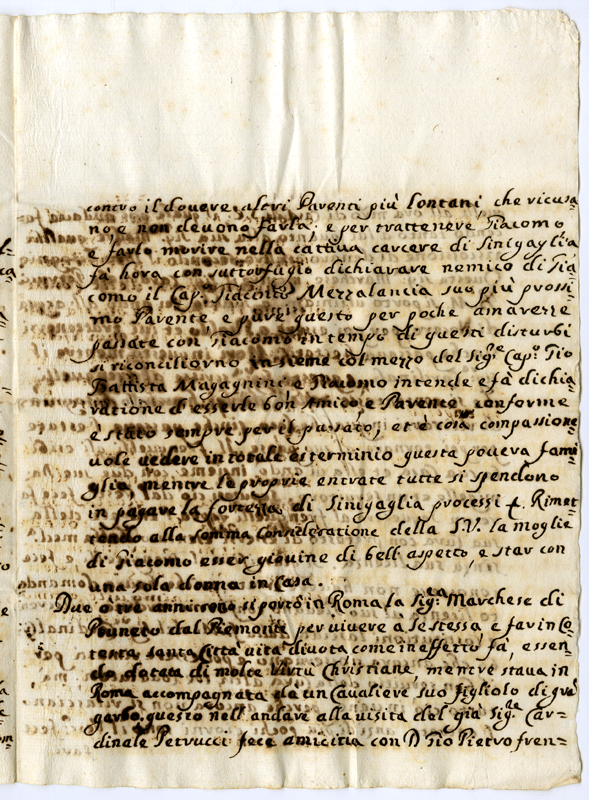 contro il douere altri Parenti più lontani, che ricusa
no e non deuono farla; e per trattenere Giacomo
e farlo morire nella cattiua carcere di Sinigaglia
fà hora con suttorfugio dichiarare nemico di Gia
como il Cap.º Giacinto Mezzalancia suo più prossi
mo Parente e pure questo per poche amarezze
passate con Giacomo in tempo di questi disturbi
si riconciliorno insieme col mezzo del Sig.re Cap.º Gio
Battista Magagnini e Giacomo intende e fà dichia
ratione d'esserle bon Amico, e Parente conforme
è stato sempre per il passato; et è cosa compassione
uole uedere in totale esterminio questa pouera fami
glia, mentre le proprie entrate tutte si spendono
in pagare la fortezza di Sinigaglia processi Rimet
tendo alla somma consideratione della S.V. la moglie
di Giacomo esser giouine di bell' aspetto, e star con
una sola donna in Casa.
Due o tre anni sono si portò in Roma la Sig.ra Marchese di
del Piemonte per viuere a se stessa e far in Co
testa santa Città vita diuota come in effetto fà, essen
do dotata di molte Virtù Christiane, mentre staua in
Roma accompagnata da un Caualiere suo figliolo di
garbo, questo nell' andare alla visita del già Sig.re Car=
dinale Petrucci fece amicitia con D Gio Pietro fren=